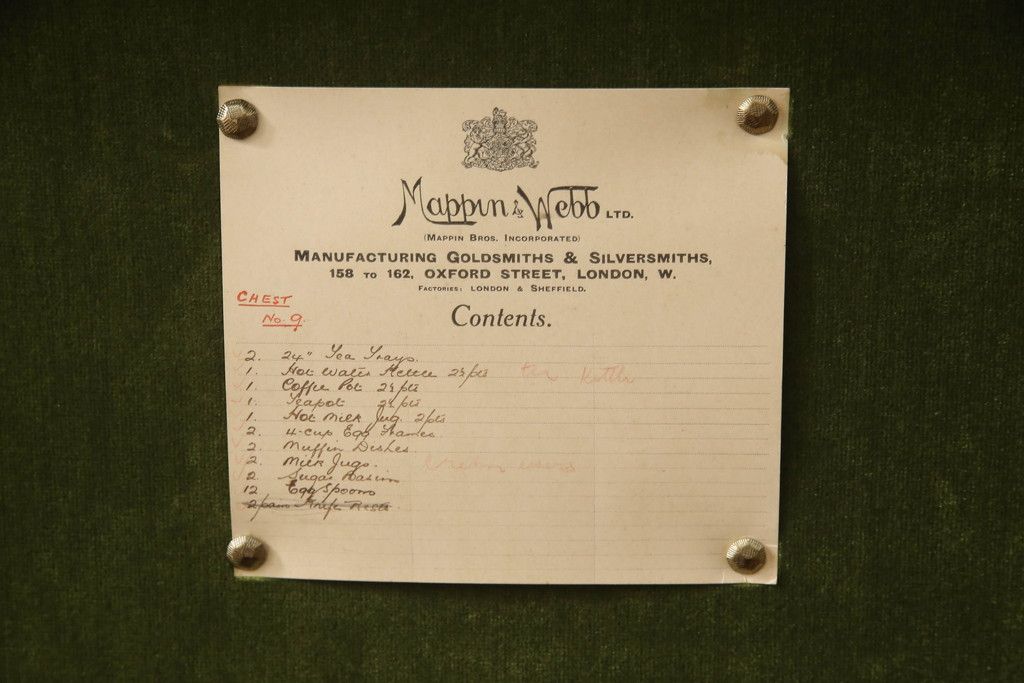 Mappin & Webb LTD.
(MAPPIN BROS. INCORPORATED)
MANUFACTURING GOLDSMITHS & SILVERSMITHS,
158 TO 162, OXFORD STREET, LONDON, W.
FACTORIES: LONDON & SHEFFIELD.
CHEST
No. 9.
Contents.
2. 24" Tea Trays.
1. Hot Water 2½ pts Kettle
1. Coffee Pot 2½ pts
1. Teapot 2½ pts
1. Hot Milk Jug. 2 pts
2. 4-cup Egg Frames
2. Muffin Dishes
2. Milk Jugs.
2. Sugar Basins
12 Egg Spoons
2 pairs Knife Rests